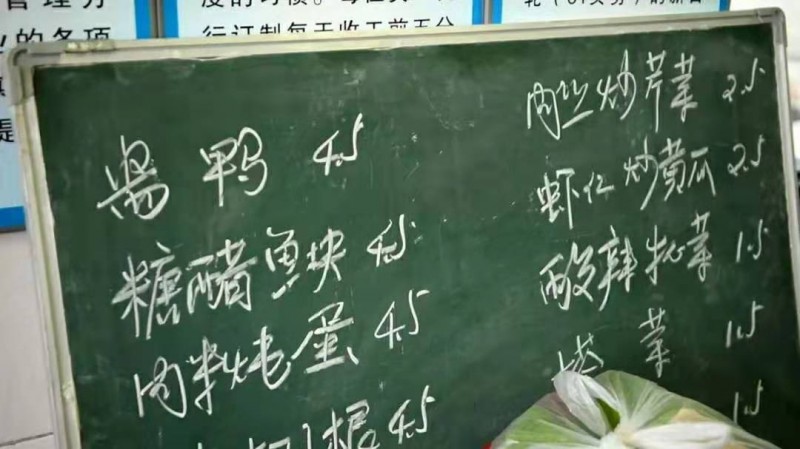 管理分
的各项
行订制每天收工前五分
酱鸭 4.5
糖醋鱼块 4.5
肉半炖蛋 4.5
4.5
肉丝炒芹菜 2.5
虾仁炒黄瓜 2.5
酸辣包菜 1.5
塔菜 1.5
1.5